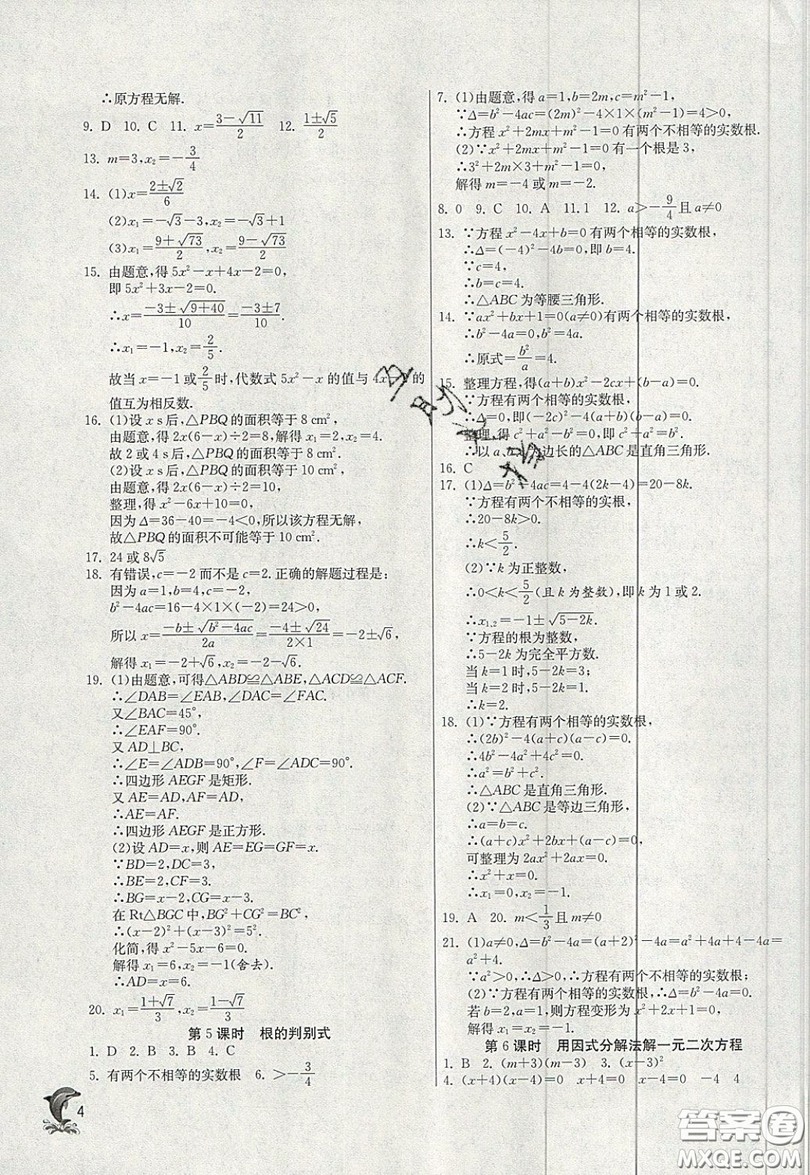 ∴原方程无解.
9. D  10. C  11. x=(3-√11)/2  12. (1±√5)/2
13. m=3,x₂=-3/4
14. (1)x=(2±√2)/6
(2)x₁=-√3-3,x₂=-√3+1
(3)x₁=(9+√73)/2,x₂=(9-√73)/2
15. 由题意,得 5x²-x+4x-2=0,
即 5x²+3x-2=0.
∴x=(-3±√(9+40))/10=(-3±7)/10.
∴x₁=-1,x₂=2/5.
故当 x=-1 或 2/5 时,代数式 5x²-x 的值与 4x 的
值互为相反数.
16. (1)设 x s后,△PBQ 的面积等于 8 cm²,
由题意,得 2x(6-x)÷2=8,解得 x₁=2,x₂=4.
故 2 或 4 s后,△PBQ 的面积等于 8 cm².
(2)设 x s后,△PBQ 的面积等于 10 cm²,
由题意,得 2x(6-x)÷2=10.
整理,得 x²-6x+10=0,
因为 Δ=36-40=-4<0,所以该方程无解,
故△PBQ 的面积不可能等于 10 cm².
17. 24 或 8√5
18. 有错误,c=-2 而不是 c=2. 正确的解题过程是:
因为 a=1,b=4,c=-2,
b²-4ac=16-4×1×(-2)=24>0,
所以 x=(-b±√(b²-4ac))/2a=(-4±√24)/(2×1)=-2±√6,
解得 x₁=-2+√6,x₂=-2-√6.
19. (1)由题意,可得△ABD≌△ABE,△ACD≌△ACF.
∴∠DAB=∠EAB,∠DAC=∠FAC.
又∠BAC=45°,
∴∠EAF=90°.
又 AD⊥BC,
∴∠E=∠ADB=90°,∠F=∠ADC=90°.
∴四边形 AEGF 是矩形.
又 AE=AD,AF=AD,
∴AE=AF.
∴四边形 AEGF 是正方形.
(2)设 AD=x,则 AE=EG=GF=x.
∵BD=2,DC=3,
∴BE=2,CF=3.
∴BG=x-2,CG=x-3.
在 Rt△BGC 中,BG²+CG²=BC²,
∴(x-2)²+(x-3)²=5².
化简,得 x²-5x-6=0.
解得 x₁=6,x₂=-1(舍去).
∴AD=x=6.
20. x₁=(1+√7)/3,x₂=(1-√7)/3
第 5 课时  根的判别式
1. D  2. B  3. B  4. B
5. 有两个不相等的实数根  6. >-3/4
4
7. (1)由题意,得 a=1,b=2m,c=m²-1,
∵Δ=b²-4ac=(2m)²-4×1×(m²-1)=4>0,
∴方程 x²+2mx+m²-1=0 有两个不相等的实数根.
(2)∵x²+2mx+m²-1=0 有一个根是 3,
∴3²+2m×3+m²-1=0,
解得 m=-4 或 m=-2.
8. 0  9. C  10. A  11. 1  12. a>-9/4 且 a≠0
13. ∵方程 x²-4x+b=0 有两个相等的实数根,
∴Δ=(-4)²-4b=0,即 b=4.
∵c=4,
∴b=c=4.
∴△ABC 为等腰三角形.
14. ∵ax²+bx+1=0(a≠0)有两个相等的实数根,
∴b²-4a=0,b²=4a.
∴原式=b²/a=4.
15. 整理方程,得(a+b)x²-2cx+(b-a)=0.
∵方程有两个相等的实数根,
∴Δ=0,即(-2c)²-4(a+b)(b-a)=0,
整理,得 c²+a²=b².
∴以 a, 边长的△ABC 是直角三角形.
16. C
17. (1)Δ=b²-4ac=4-4(2k-4)=20-8k.
∵方程有两个不相等的实根,
∴20-8k>0,
∴k<5/2.
(2)∵k 为正整数,
∴0<k<5/2(且 k 为整数),即 k 为 1 或 2.
∴x₁,₂=-1±√(5-2k).
∵方程的根为整数,
∴5-2k 为完全平方数.
当 k=1 时,5-2k=3;
当 k=2 时,5-2k=1.
∴k=2.
18. (1)∵方程有两个相等的实数根,
∴(2b)²-4(a+c)(a-c)=0.
∴4b²-4a²+4c²=0.
∴a²=b²+c².
∴△ABC 是直角三角形.
(2)∵△ABC 是等边三角形,
∴a=b=c.
∴(a+c)x²+2bx+(a-c)=0,
可整理为 2ax²+2ax=0.
∴x²+x=0.
∴x₁=0,x₂=-1.
19. A  20. m<1/3 且 m≠0
21. (1)a≠0,Δ=b²-4a=(a+2)²-4a=a²+4a+4-4a=
a²+4.
∵a²>0,∴Δ>0,∴方程有两个不相等的实数根;
(2)∵方程有两个相等的实数根,∴Δ=b²-4a=0,
若 b=2,a=1,则方程变形为 x²+2x+1=0,
解得 x₁=x₂=-1.
第 6 课时  用因式分解法解一元二次方程
1. B  2. (m+3)(m-3)  3. (x-3)²
4. (x+4)(x-4)=0  x+4=0  x-4=0  -4  4
答案卷
MXQE.COM